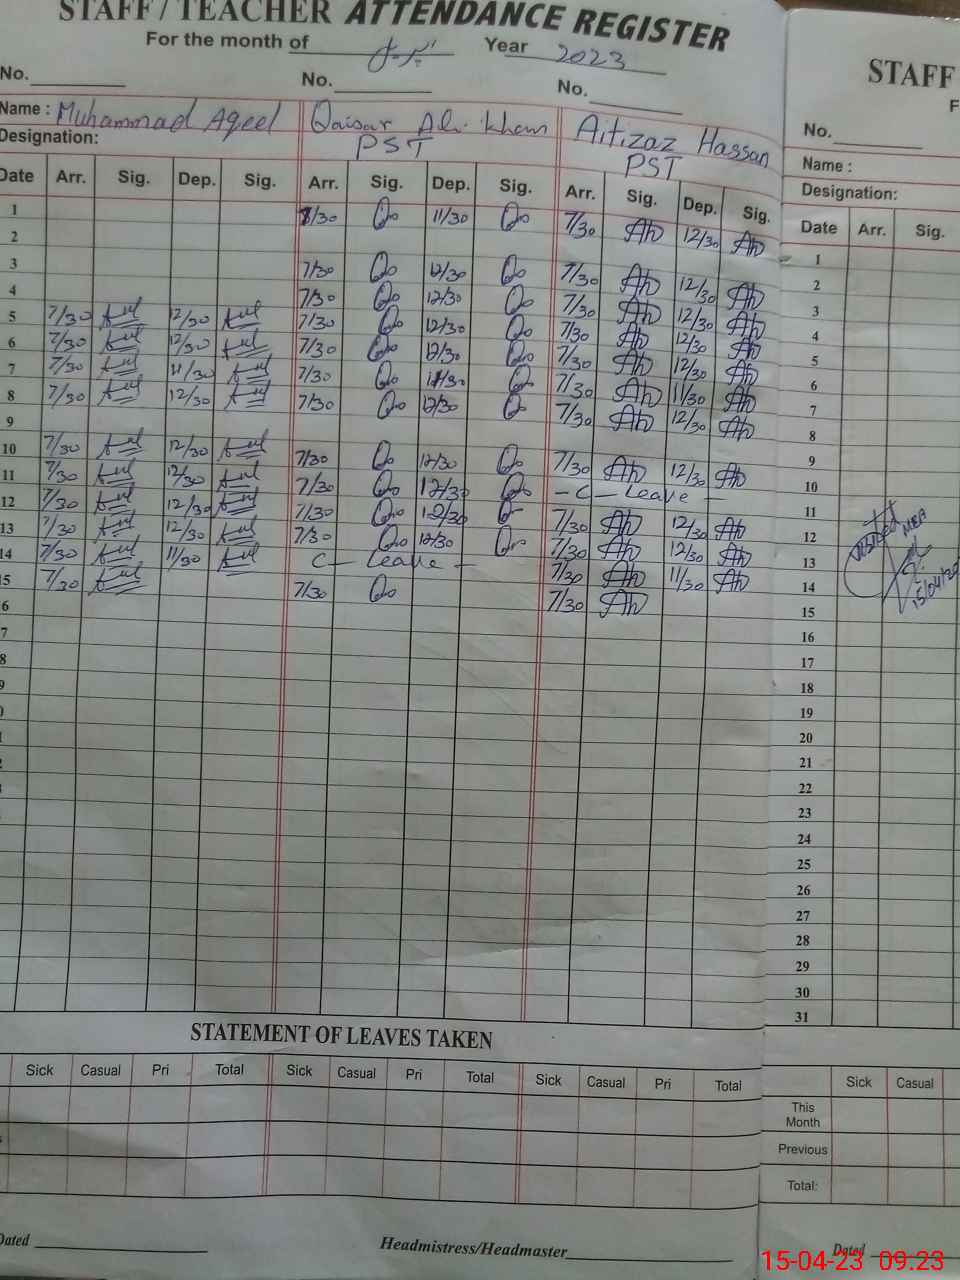 STAFF / TEACHER ATTENDANCE REGISTER
For the month of Year 2023
No. No. No.
Name : Muhammad Aqeel Qaisar Ali Khan Aitizaz Hassan
Designation: PST PST
Date Arr. Sig. Dep. Sig. Arr. Sig. Dep. Sig. Arr. Sig. Dep. Sig.
1 /30 11/30 7/30 Ah 12/30 Ah
2
3 7/30 12/30 7/30 Ah 12/30 Ah
4 7/30 12/30 7/30 Ah 12/30 Ah
5 7/30 12/30 7/30 12/30 7/30 Ah 12/30 Ah
6 7/30 12/30 7/30 12/30 7/30 Ah 12/30 Ah
7 7/30 11/30 7/30 11/30 7/30 Ah 11/30 Ah
8 7/30 12/30 7/30 12/30 7/30 Ah 12/30 Ah
9
10 7/30 12/30 7/30 12/30 7/30 Ah 12/30 Ah
11 7/30 12/30 7/30 12/30 - C - Leave -
12 7/30 12/30 7/30 12/30 7/30 Ah 12/30 Ah
13 7/30 12/30 7/30 12/30 7/30 Ah 12/30 Ah
14 7/30 11/30 C - Leave - 7/30 Ah 11/30 Ah
15 7/30 7/30 7/30 Ah
6
7
8
9
0
1
2
STATEMENT OF LEAVES TAKEN
Sick Casual Pri Total Sick Casual Pri Total Sick Casual Pri Total
Dated Headmistress/Headmaster
STAFF
F
No.
Name :
Designation:
Date Arr. Sig.
1
2
3
4
5
6
7
8
9
10
11
12
13
14
15
16
17
18
19
20
21
22
23
24
25
26
27
28
29
30
31
Visited
MEA
15/04/20
Sick Casual
This
Month
Previous
Total:
Dated
15-04-23 09.23